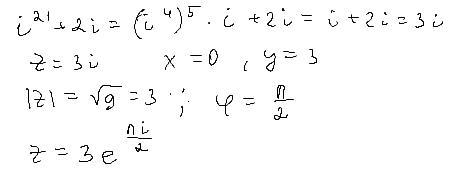 i^21 + 2i = (i^4)^5 · i + 2i = i + 2i = 3i
z = 3i x = 0 , y = 3
|z| = √9 = 3 ; φ = π/2
z = 3 e^(πi/2)